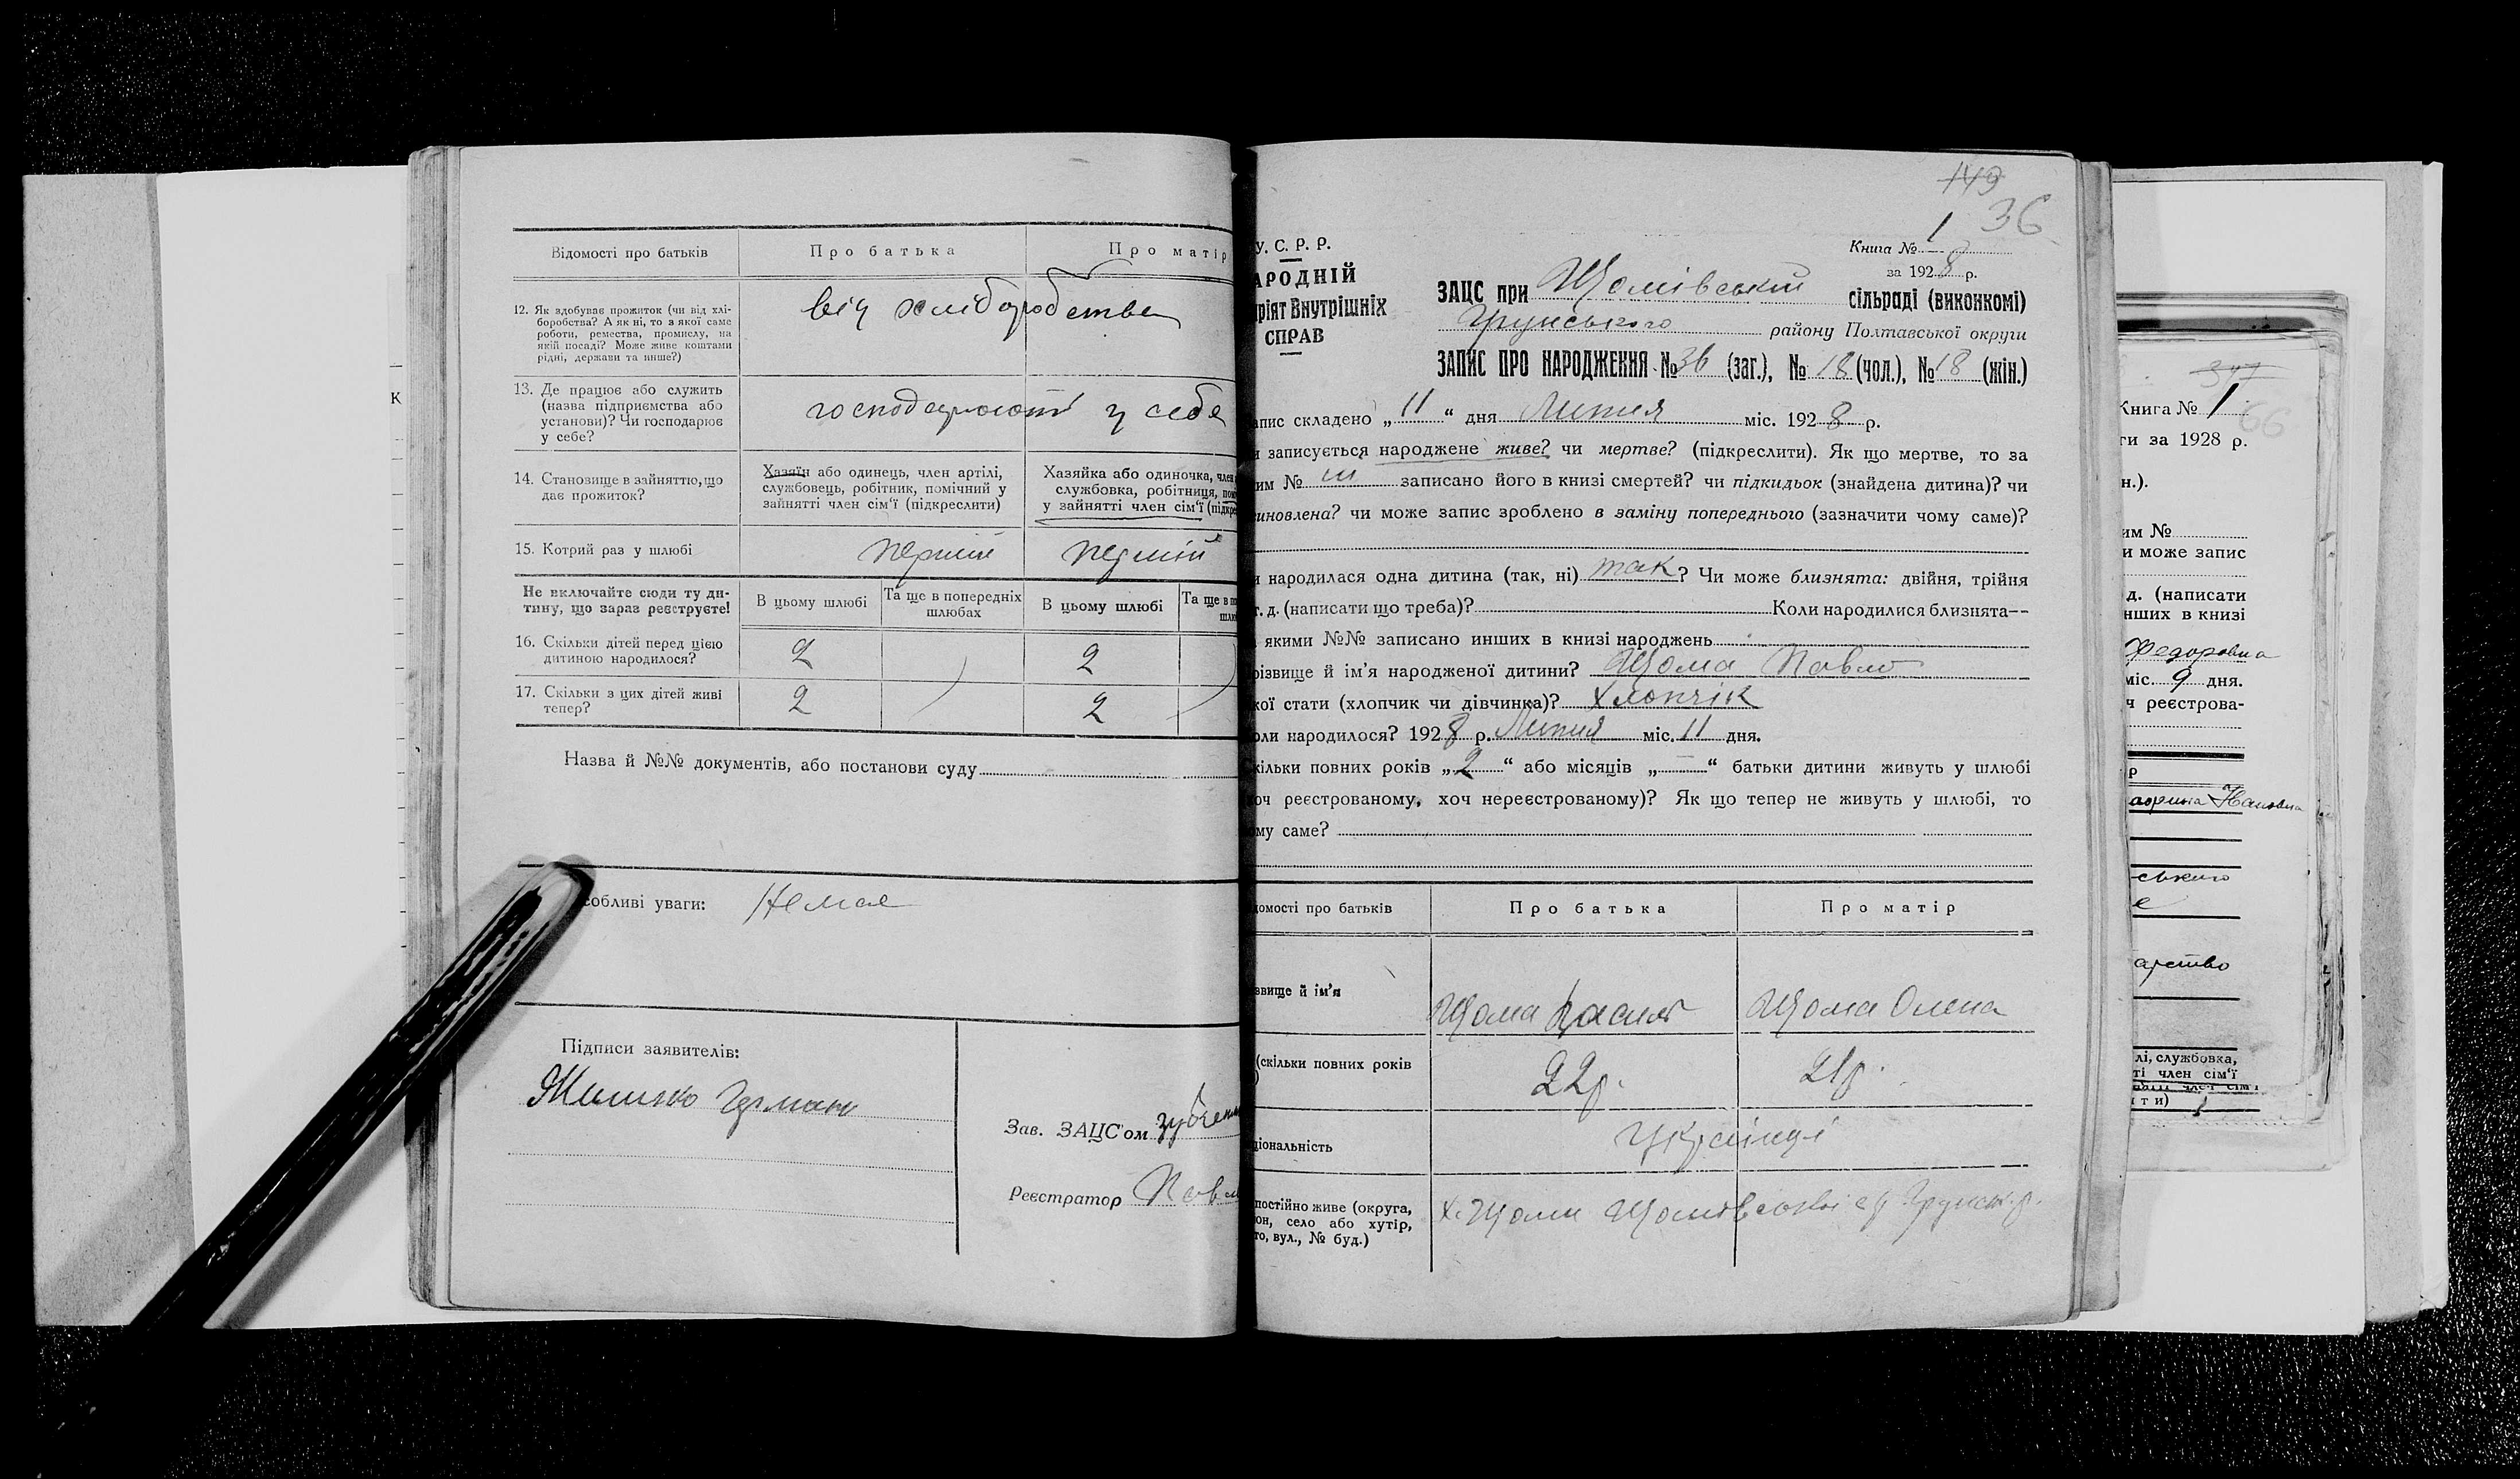 Відомості про батьків
Про батька
Про матір
12. Як здобуває прожиток (чи від хлі-
боробства? А як ні, то з якої саме
роботи, ремества, промислу, на
якій посаді? Може живе коштами
рідні, держави та инше?)
від хліборобства
13. Де працює або служить
(назва підприємства або
установи)? Чи господарює
у себе?
господарюють у себе
14. Становище в зайняттю, що
дає прожиток?
Хазяїн або одинець, член артілі,
службовець, робітник, помічний у
зайнятті член сім'ї (підкреслити)
Хазяйка або одиночка, член
службовка, робітниця,
у зайнятті член сім'ї
15. Котрий раз у шлюбі
перший
Не включайте сюди ту ди-
тину, що зараз реєструєте!
В цьому шлюбі
Та ще в попередніх
шлюбах
В цьому шлюбі
Та ще в
16. Скільки дітей перед цією
дитиною народилося?
2
2
17. Скільки з цих дітей живі
тепер?
2
2
Назва й №№ документів, або постанови суду
уваги: Немає
Підписи заявителів:
Зав. ЗАЦС'ом
Реєстратор
149
36
У. С. Р. Р.
АРОДНІЙ
РІЯТ Внутрішніх
СПРАВ
Книга № 1
за 1928 р.
ЗАЦС при Щомівській сільраді (виконкомі)
Грунського району Полтавської округи
ЗАПИС ПРО НАРОДЖЕННЯ № 36 (заг.), № 18 (чол.), № 18 (жін.)
апис складено „11“ дня Липня міс. 1928 р.
записується народжене живе? чи мертве? (підкреслити). Як що мертве, то за
им № записано його в книзі смертей? чи підкидьок (знайдена дитина)? чи
иновлена? чи може запис зроблено в заміну попереднього (зазначити чому саме)?
народилася одна дитина (так, ні) так? Чи може близнята: двійня, трійня
т. д. (написати що треба)? Коли народилися близнята—
якими №№ записано инших в книзі народжень
різвище й ім'я народженої дитини? Щома Павло
кої стати (хлопчик чи дівчинка)? Хлопчік
оли народилося? 1928 р. Липня міс. 11 дня.
кільки повних років „2“ або місяців „—“ батьки дитини живуть у шлюбі
оч реєстрованому, хоч нереєстрованому)? Як що тепер не живуть у шлюбі, то
ому саме?
домості про батьків
Про батька
Про матір
звище й ім'я
Щома
Щома Олена
(скільки повних років
22 р.
21 р.
ціональність
Українці
постійно живе (округа,
он, село або хутір,
то, вул., № буд.)
х. Щоми Щомівської с/р Грунськ. р.
347
Книга № 1
66
ти за 1928 р.
н.).
им №
и може запис
д. (написати
нших в книзі
Федоровна
міс. 9 дня.
ч реєстрова-
р
ського
арство
лі, службовка,
ті член сім'ї